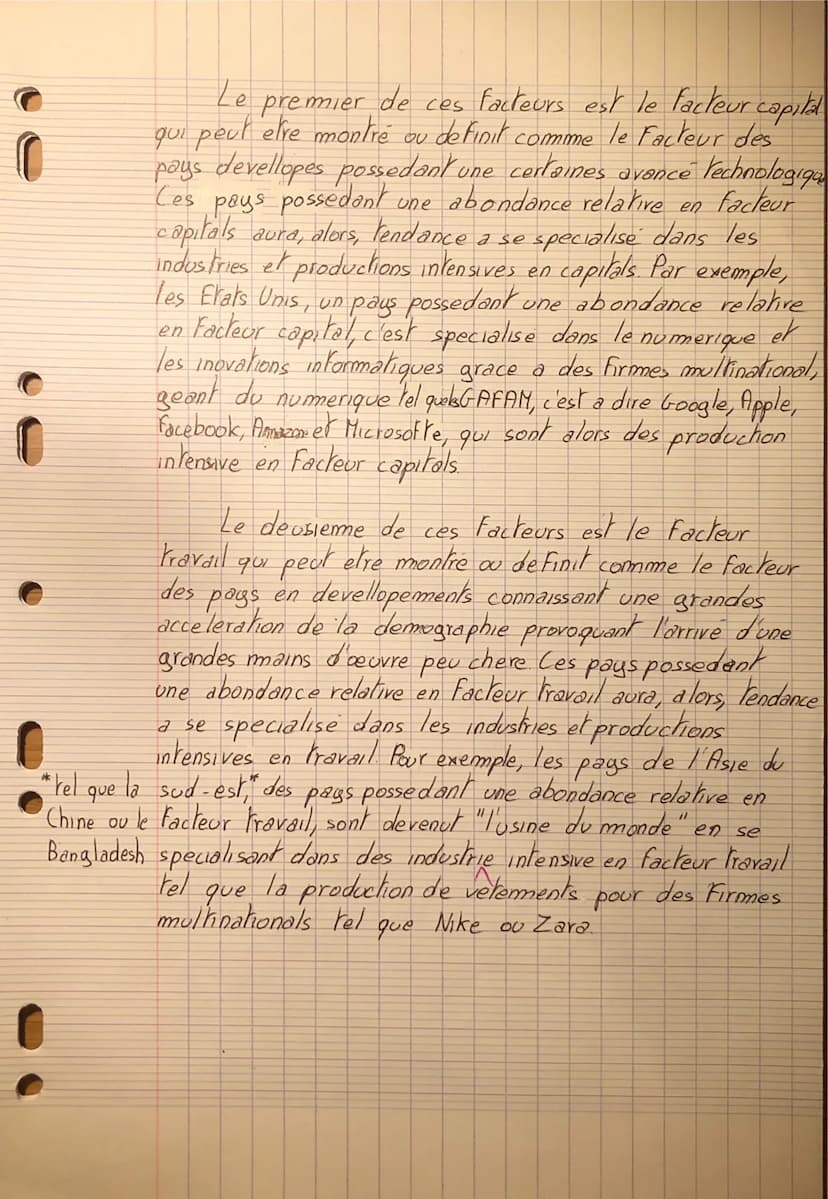 Le premier de ces facteurs est le facteur capital
qui peut etre montré ou definit commme le facteur des
pays devellopes possedant une certaines avance technologique
Ces pays possedant une abondance relative en facteur
capitals aura, alors, tendance a se specialisé dans les
industries et productions intensives en capitals. Par exemple,
les Etats Unis, un pays possedant une abondance relative
en facteur capital, c'est specialisé dans le numerique et
les inovations informatiques grace a des firmes multinational,
geant du nummerique tel quels GAFAM, c'est a dire Google, Apple,
Facebook, Amazon et Microsofte, qui sont alors des production
intensive en facteur capitals.
Le deusieme de ces facteurs est le facteur
travail qui peut etre montré ou definit commme le facteur
des pays en devellopements connaissant une grandes
acceleration de la demographie provoquant l'arrivé d'une
grandes mains d'œuvre peu chere Ces pays possedant
une abondance relative en facteur travail aura, alors, tendance
a se specialisé dans les industries et productions
intensives en travail. Par exemple, les pays de l'Asie du
sud-est,* des pays possedant une abondance relative en
facteur travail, sont devenut "l'usine du monde" en se
specialisant dans des industrie intensive en facteur travail
tel que la production de vêtements pour des firmes
multinationals tel que Nike ou Zara.
*tel que la
Chine ou le
Bangladesh